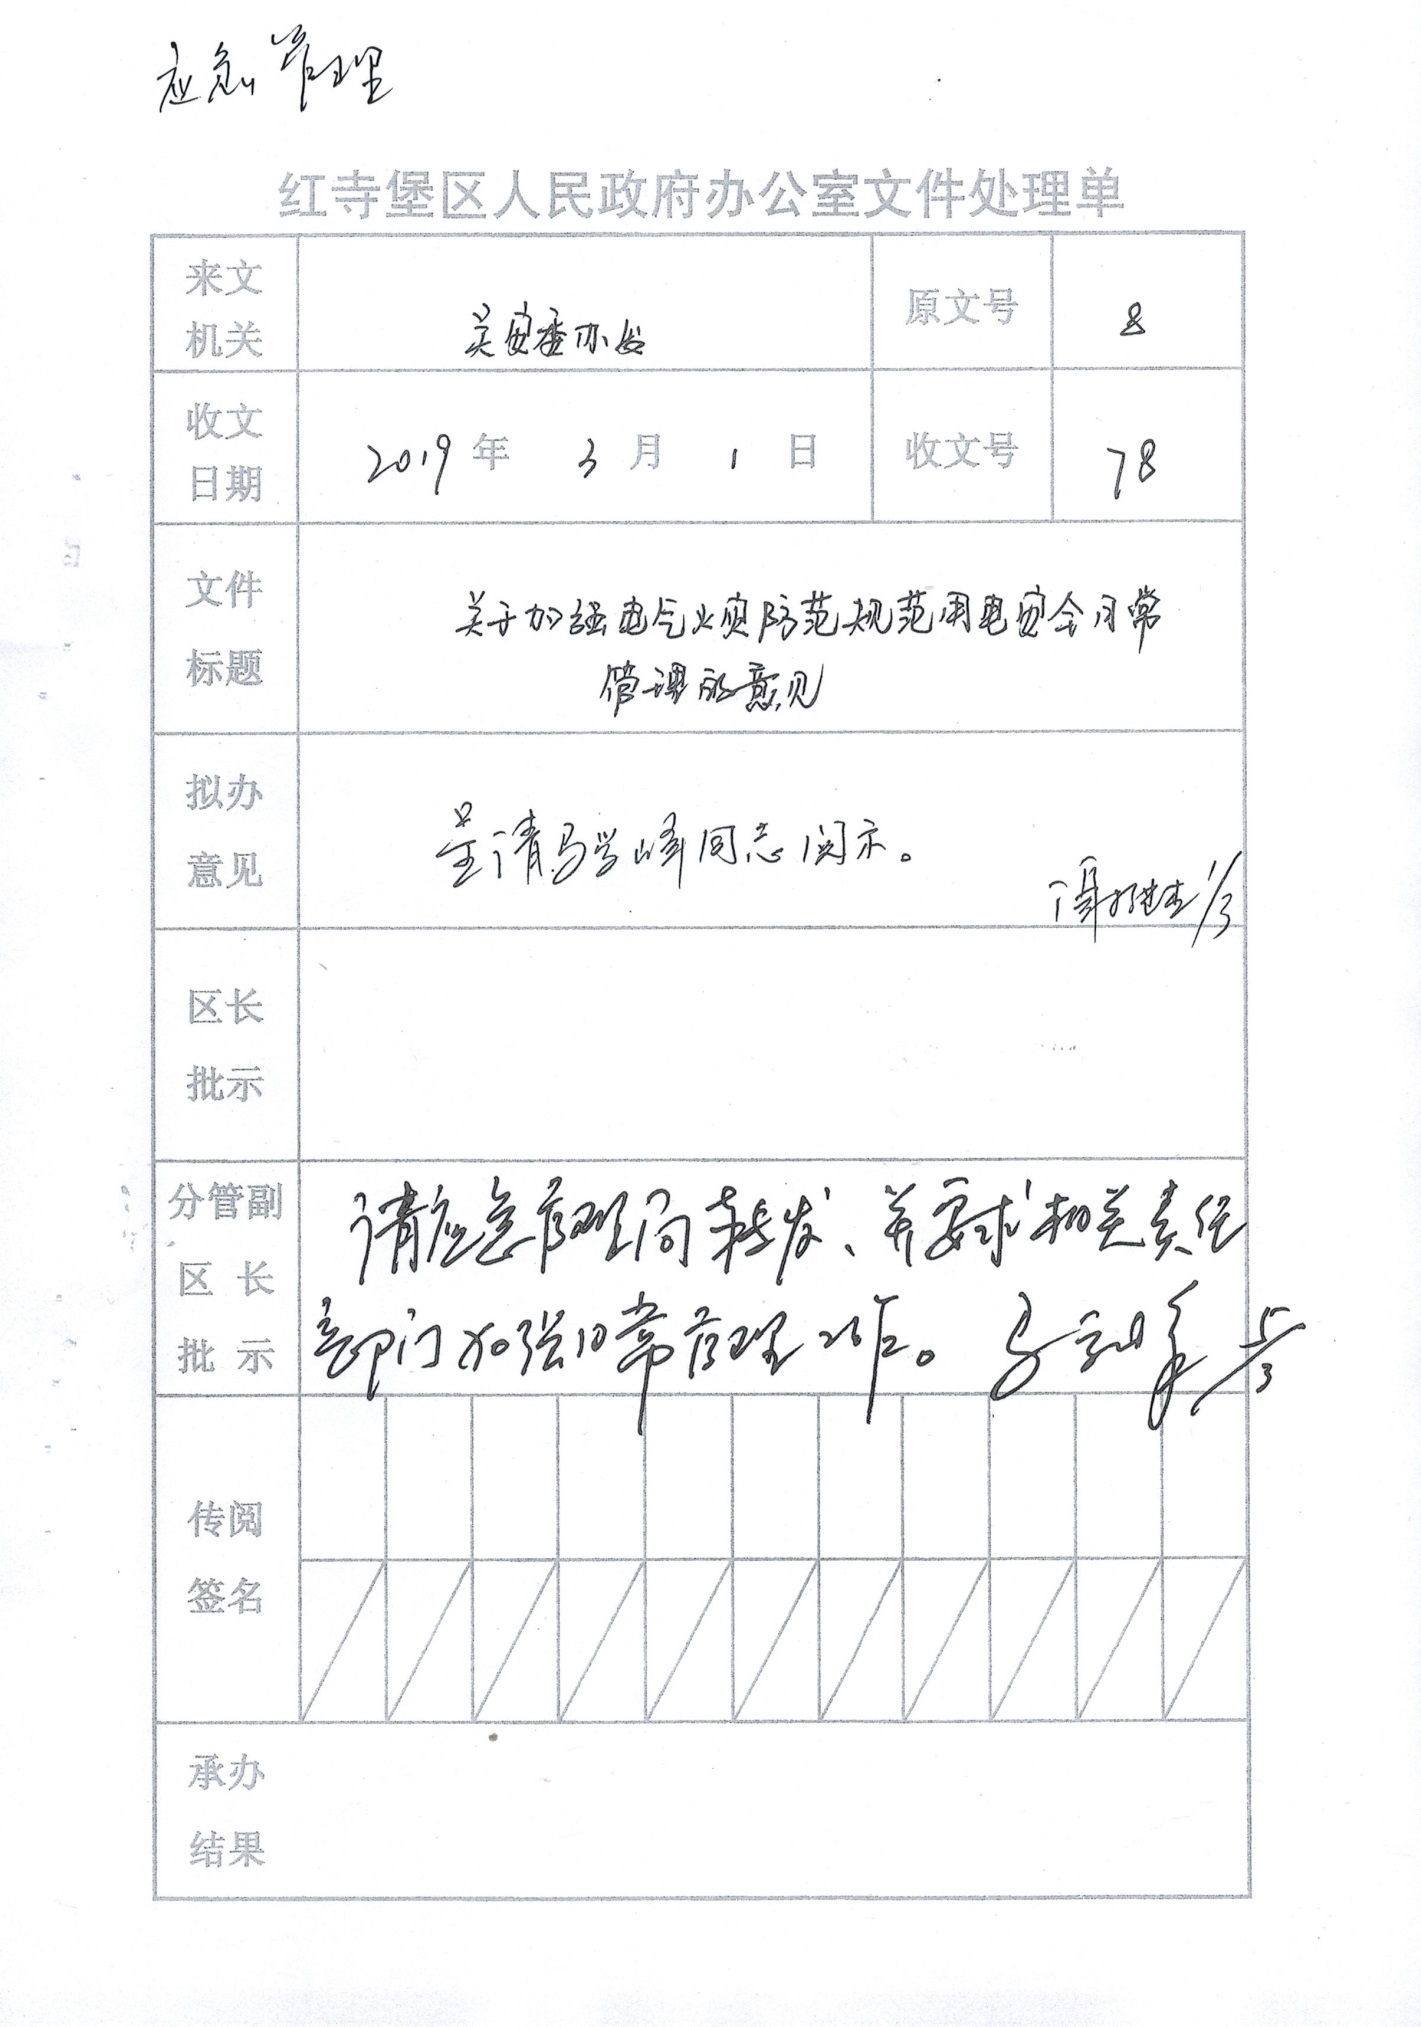 应急管理
红寺堡区人民政府办公室文件处理单
来文
机关
吴安委办发
原文号
8
收文
日期
2019年 3月 1日
收文号
78
文件
标题
关于加强电气火灾防范规范用电安全日常
管理的意见
拟办
意见
呈请马学峰同志阅示。
1/3
区长
批示
分管副
区 长
批 示
请应急管理局转发、并要求相关责任
部门加强日常管理工作。 马学峰 5/3
传阅
签名
承办
结果